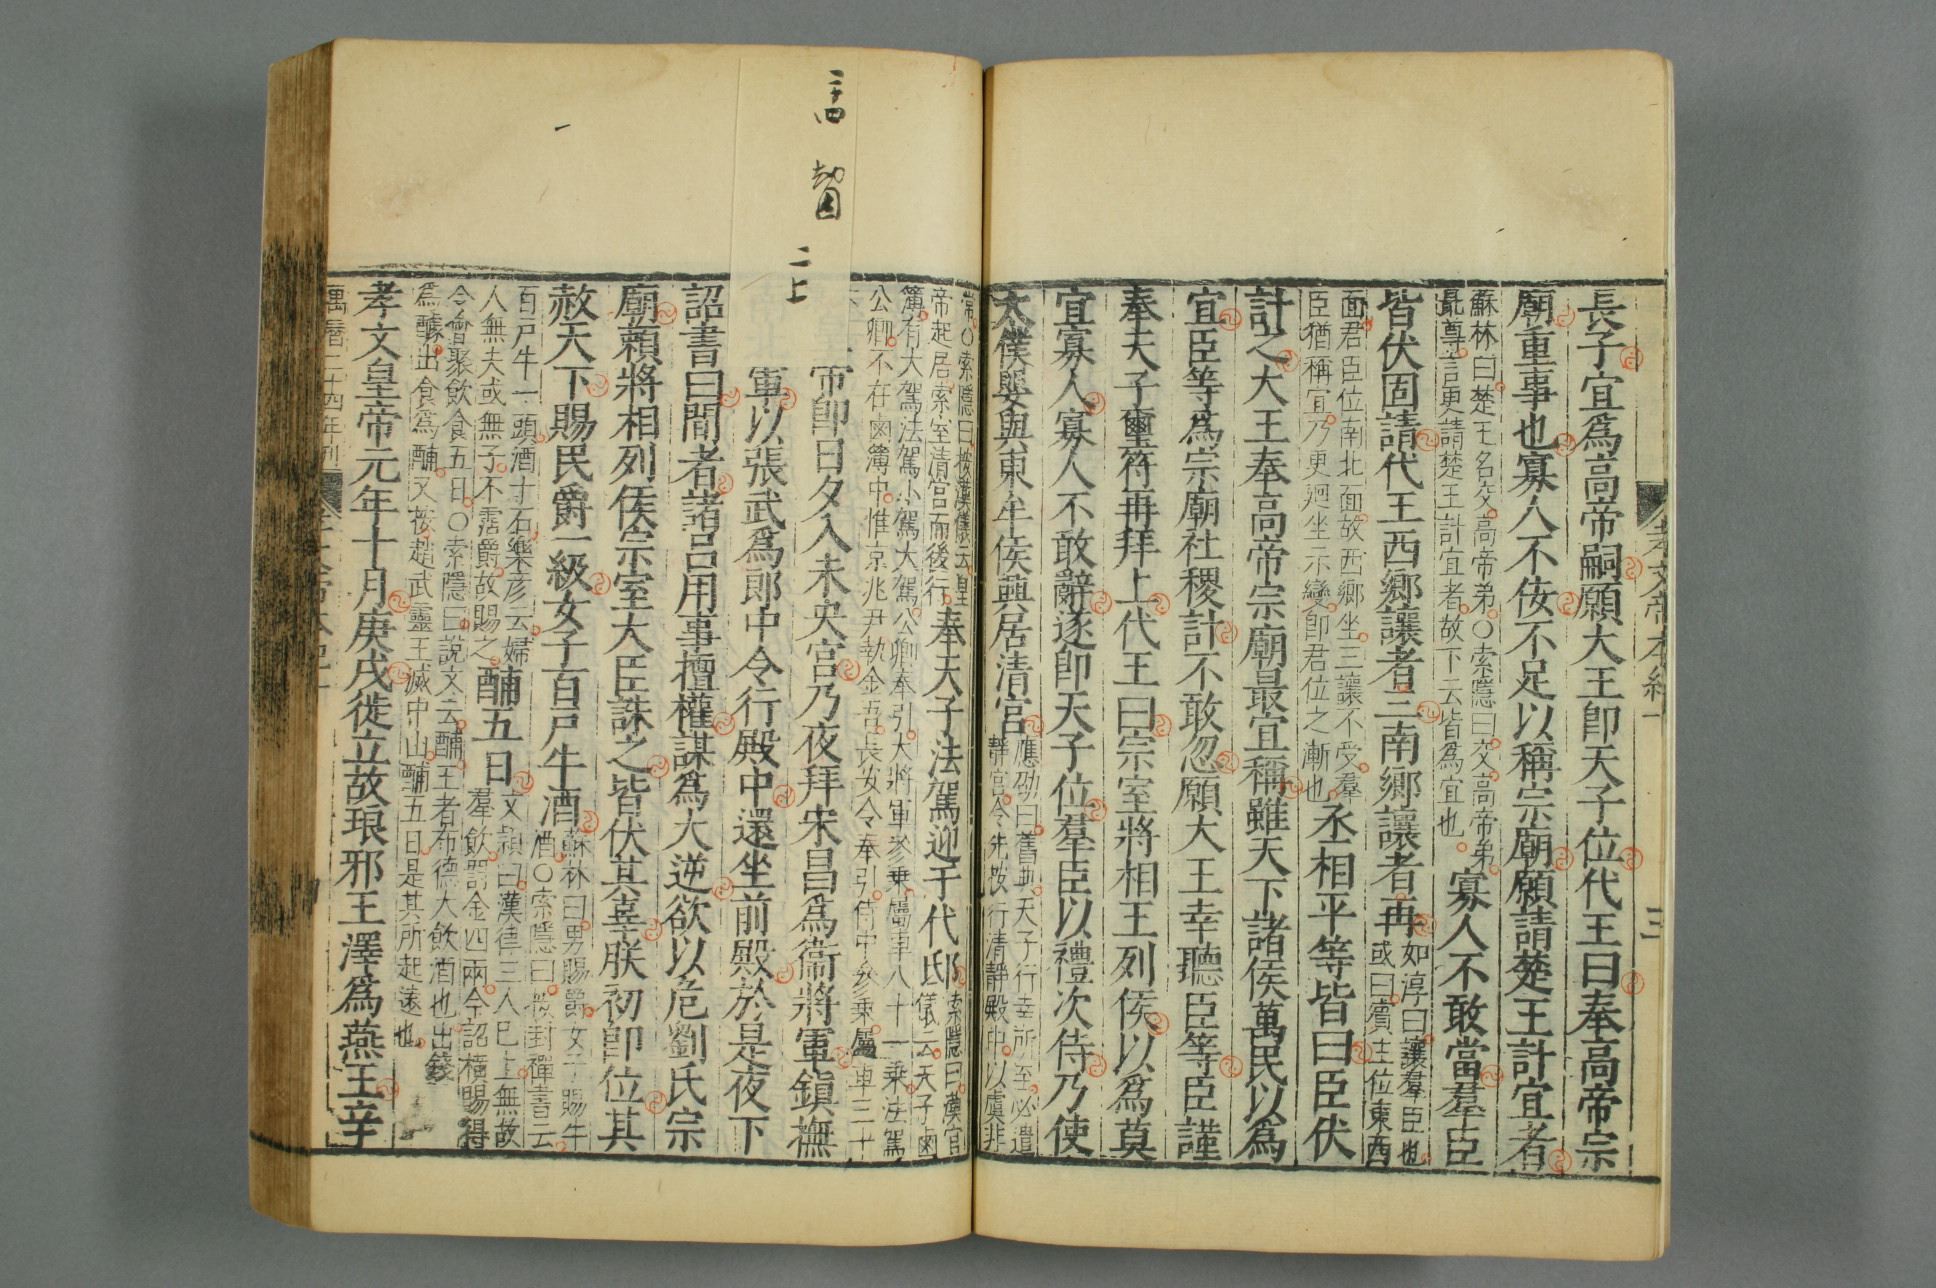 孝文帝本紀 三
長子宜爲高帝嗣願大王卽天子位代王曰奉高帝宗
廟重事也寡人不佞不足以稱宗廟願請楚王計宜者
蘇林曰楚王名交高帝弟○索隱曰交高帝弟
最尊言更請楚王計宜者故下云皆爲宜也
寡人不敢當羣臣
皆伏固請代王西鄉讓者三南鄉讓者再
如淳曰讓羣臣也
或曰賓主位東西
面君臣位南北面故西鄉坐三讓不受羣
臣猶稱宜乃更廻坐示變卽君位之漸也
丞相平等皆曰臣伏
計之大王奉高帝宗廟最宜稱雖天下諸侯萬民以爲
宜臣等爲宗廟社稷計不敢忽願大王幸聽臣等臣謹
奉天子璽符再拜上代王曰宗室將相王列侯以爲莫
宜寡人寡人不敢辭遂卽天子位羣臣以禮次侍乃使
太僕嬰與東牟侯興居清宮
應劭曰舊典天子行幸所至必遣
靜宮令先按行清靜殿中以虞非
常○索隱曰按漢儀云皇
帝起居索室清宮而後行
奉天子法駕迎于代邸
索隱曰漢官
儀云天子鹵
簿有大駕法駕小駕大駕公卿奉引大將軍參乘屬車八十一乘法駕
公卿不在鹵簿中惟京兆尹執金吾長安令奉引侍中參乘屬車三十
帝卽日夕入未央宮乃夜拜宋昌爲衞將軍鎮撫
軍以張武爲郎中令行殿中還坐前殿於是夜下
詔書曰間者諸呂用事擅權謀爲大逆欲以危劉氏宗
廟賴將相列侯宗室大臣誅之皆伏其辜朕初卽位其
赦天下賜民爵一級女子百戶牛酒
蘇林曰男賜爵女子賜牛
酒○索隱曰按封禪書云
百戶牛一頭酒十石樂彥云婦
人無夫或無子不霑爵故賜之
酺五日
文穎曰漢律三人已上無故
羣飲罰金四兩今詔橫賜得
令會聚飲食五日○索隱曰說文云酺王者布德大飲酒也出錢
爲醵出食爲酺又按趙武靈王滅中山酺五日是其所起遠也
孝文皇帝元年十月庚戌徙立故琅邪王澤爲燕王辛
萬曆二十四年刊